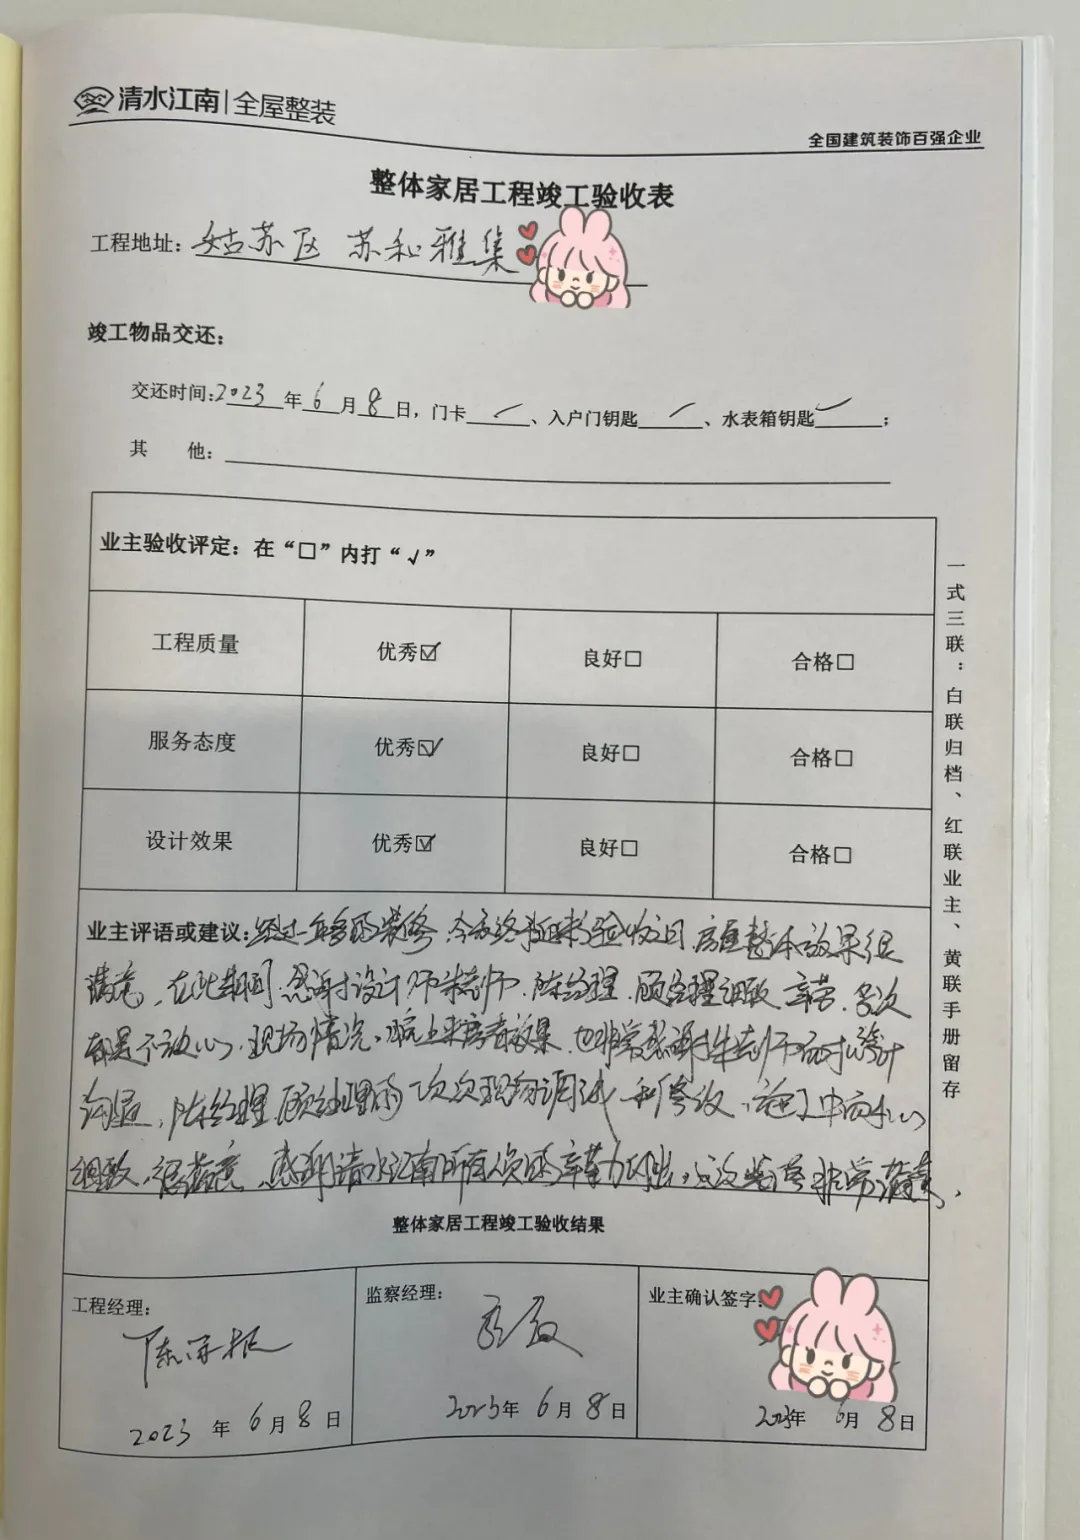 清水江南|全屋整装
全国建筑装饰百强企业
整体家居工程竣工验收表
工程地址：姑苏区 苏和雅集
竣工物品交还：
交还时间：2023年6月8日，门卡✓、入户门钥匙✓、水表箱钥匙✓；
其 他：
业主验收评定：在“□”内打“√”
工程质量 优秀☑ 良好□ 合格□
服务态度 优秀☑ 良好□ 合格□
设计效果 优秀☑ 良好□ 合格□
业主评语或建议：经过一年多的装修，今天终于迎来验收之日，房屋整体效果很
满意，在此期间，感谢设计师 陈经理，顾经理细致 辛劳，多次
现场情况，晚上来房看效果，也非常感谢
沟通，陈经理 顾经理的一次次现场调试和修改，施工中
细致，很满意，感谢清水江南所有人员的辛勤付出，这次装修非常满意，
整体家居工程竣工验收结果
工程经理： 监察经理： 业主确认签字：
2023年6月8日 2023年6月8日 2023年6月8日
一式三联：白联归档、红联业主、黄联手册留存